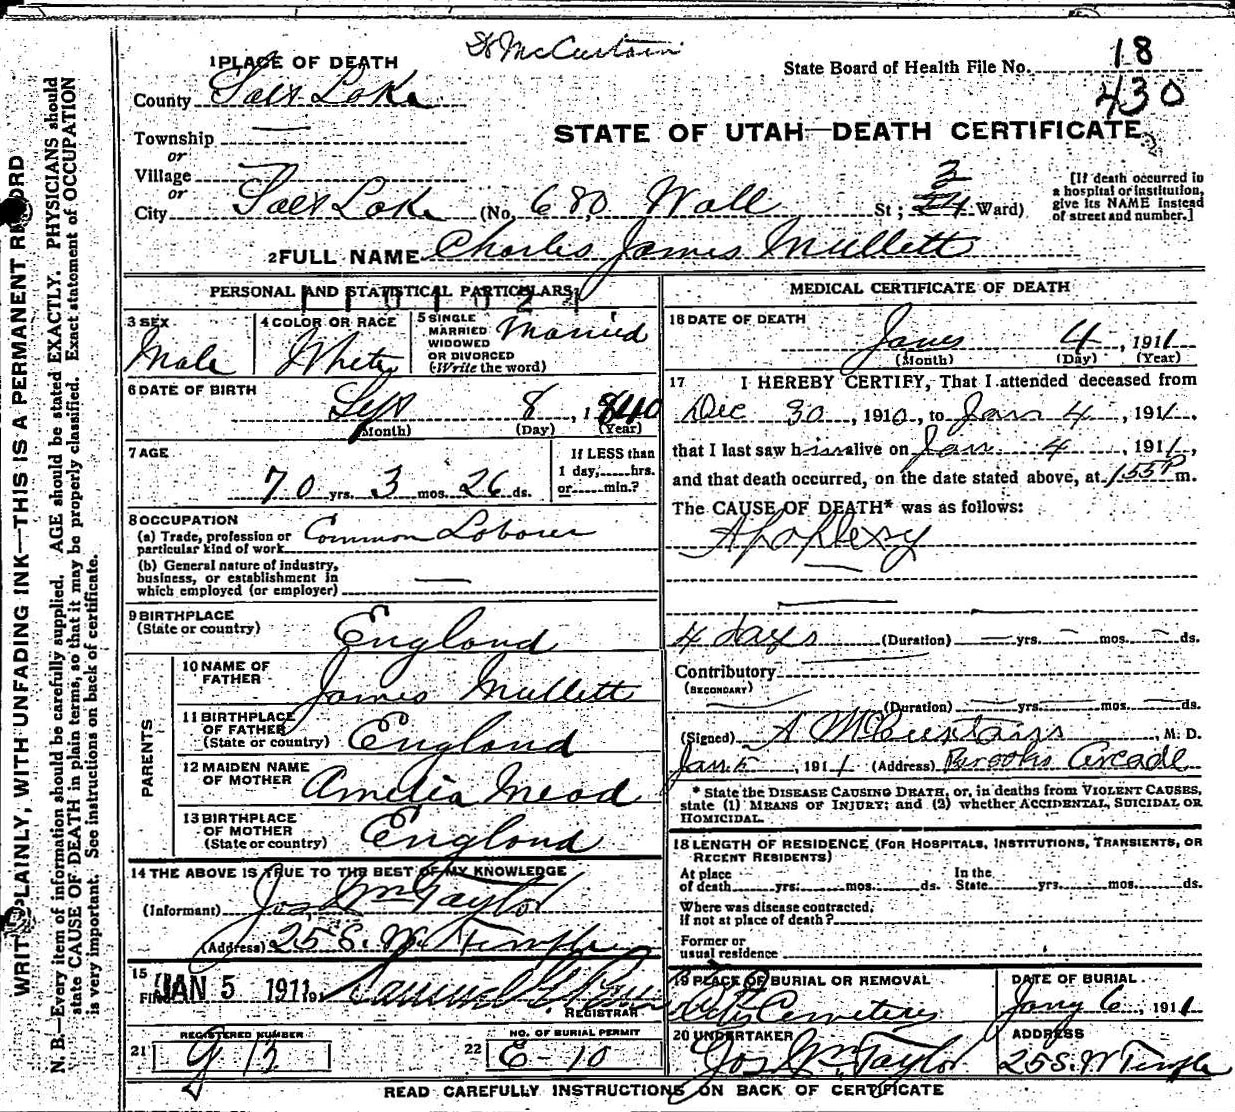 McCustain
1 PLACE OF DEATH
State Board of Health File No. 18
430
County Salt Lake
Township —
or
STATE OF UTAH—DEATH CERTIFICATE
Village
or
City Salt Lake (No. 680 Wall St; 3 Ward)
[If death occurred in a hospital or institution, give its NAME instead of street and number.]
2 FULL NAME Charles James Mullett
PERSONAL AND STATISTICAL PARTICULARS
3 SEX Male
4 COLOR OR RACE White
5 SINGLE MARRIED WIDOWED OR DIVORCED (Write the word) Married
6 DATE OF BIRTH Sept 8, 1840
(Month) (Day) (Year)
7 AGE 70 yrs. 3 mos. 26 ds.
If LESS than 1 day, hrs. or min.?
8 OCCUPATION
(a) Trade, profession or particular kind of work Common Laborer
(b) General nature of industry, business, or establishment in which employed (or employer) —
9 BIRTHPLACE (State or country) England
PARENTS
10 NAME OF FATHER James Mullett
11 BIRTHPLACE OF FATHER (State or country) England
12 MAIDEN NAME OF MOTHER Amelia Mead
13 BIRTHPLACE OF MOTHER (State or country) England
14 THE ABOVE IS TRUE TO THE BEST OF MY KNOWLEDGE
(Informant) Jos Wm Taylor
(Address) 25 S. W. Temple
15 Filed JAN 5 1911 Samuel G. Paul
REGISTRAR
REGISTERED NUMBER
21 G 13
NO. OF BURIAL PERMIT
22 E-10
MEDICAL CERTIFICATE OF DEATH
16 DATE OF DEATH
Jany 4, 1911
(Month) (Day) (Year)
17 I HEREBY CERTIFY, That I attended deceased from
Dec 30, 1910, to Jan 4, 1911,
that I last saw him alive on Jan 4, 1911,
and that death occurred, on the date stated above, at 155 P m.
The CAUSE OF DEATH* was as follows:
Apoplexy
4 days (Duration) — yrs. — mos. — ds.
Contributory
(SECONDARY)
(Duration) — yrs. — mos. — ds.
(Signed) A McCustain, M. D.
Jan 5, 1911 (Address) Brooks Arcade
* State the DISEASE CAUSING DEATH, or, in deaths from VIOLENT CAUSES, state (1) MEANS OF INJURY; and (2) whether ACCIDENTAL, SUICIDAL OR HOMICIDAL.
18 LENGTH OF RESIDENCE (FOR HOSPITALS, INSTITUTIONS, TRANSIENTS, OR RECENT RESIDENTS)
At place of death yrs. mos. ds. In the State yrs. mos. ds.
Where was disease contracted, if not at place of death?
Former or usual residence
19 PLACE OF BURIAL OR REMOVAL
City Cemetery
DATE OF BURIAL
Jany 6, 1911
20 UNDERTAKER
Jos Wm Taylor
ADDRESS
25 S. W Temple
READ CAREFULLY INSTRUCTIONS ON BACK OF CERTIFICATE
WRITE PLAINLY, WITH UNFADING INK—THIS IS A PERMANENT RECORD
N. B.—Every item of information should be carefully supplied. AGE should be stated EXACTLY. PHYSICIANS should
state CAUSE OF DEATH in plain terms, so that it may be properly classified. Exact statement of OCCUPATION
is very important. See instructions on back of certificate.